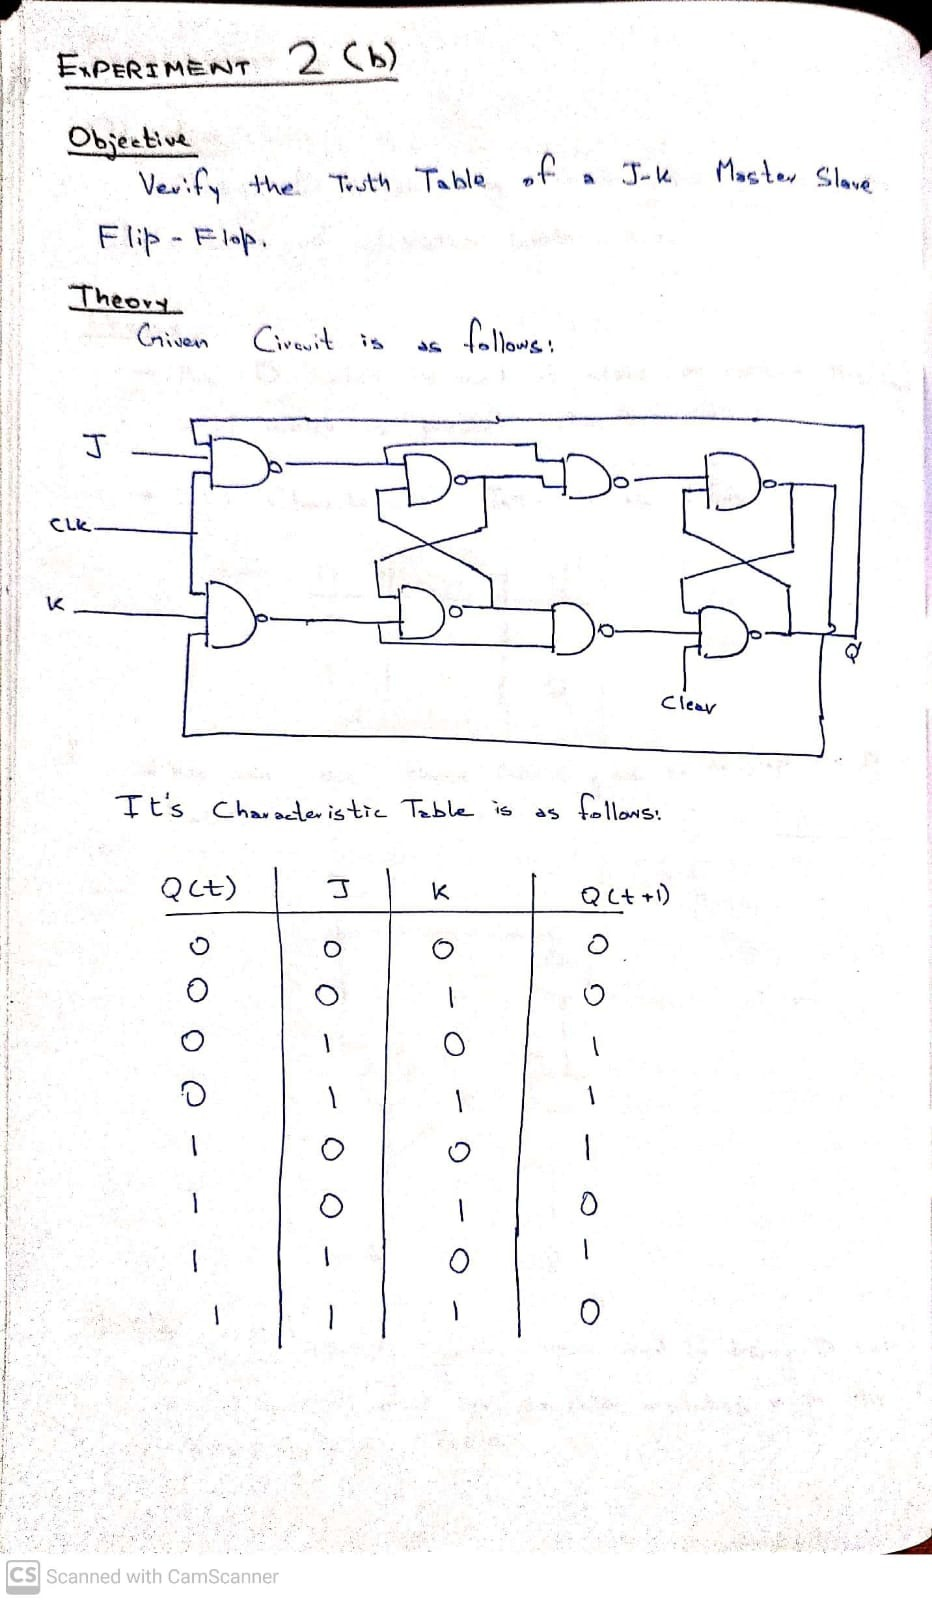 EXPERIMENT 2 (b)
Objective
Verify the Truth Table of a J-K Master Slave
Flip-Flop.
Theory
Given Circuit is as follows:
J
CLK
K
Q
Clear
It's Characteristic Table is as follows:
Q(t) J K Q(t+1)
0 0 0 0
0 0 1 0
0 1 0 1
0 1 1 1
1 0 0 1
1 0 1 0
1 1 0 1
1 1 1 0
CS Scanned with CamScanner